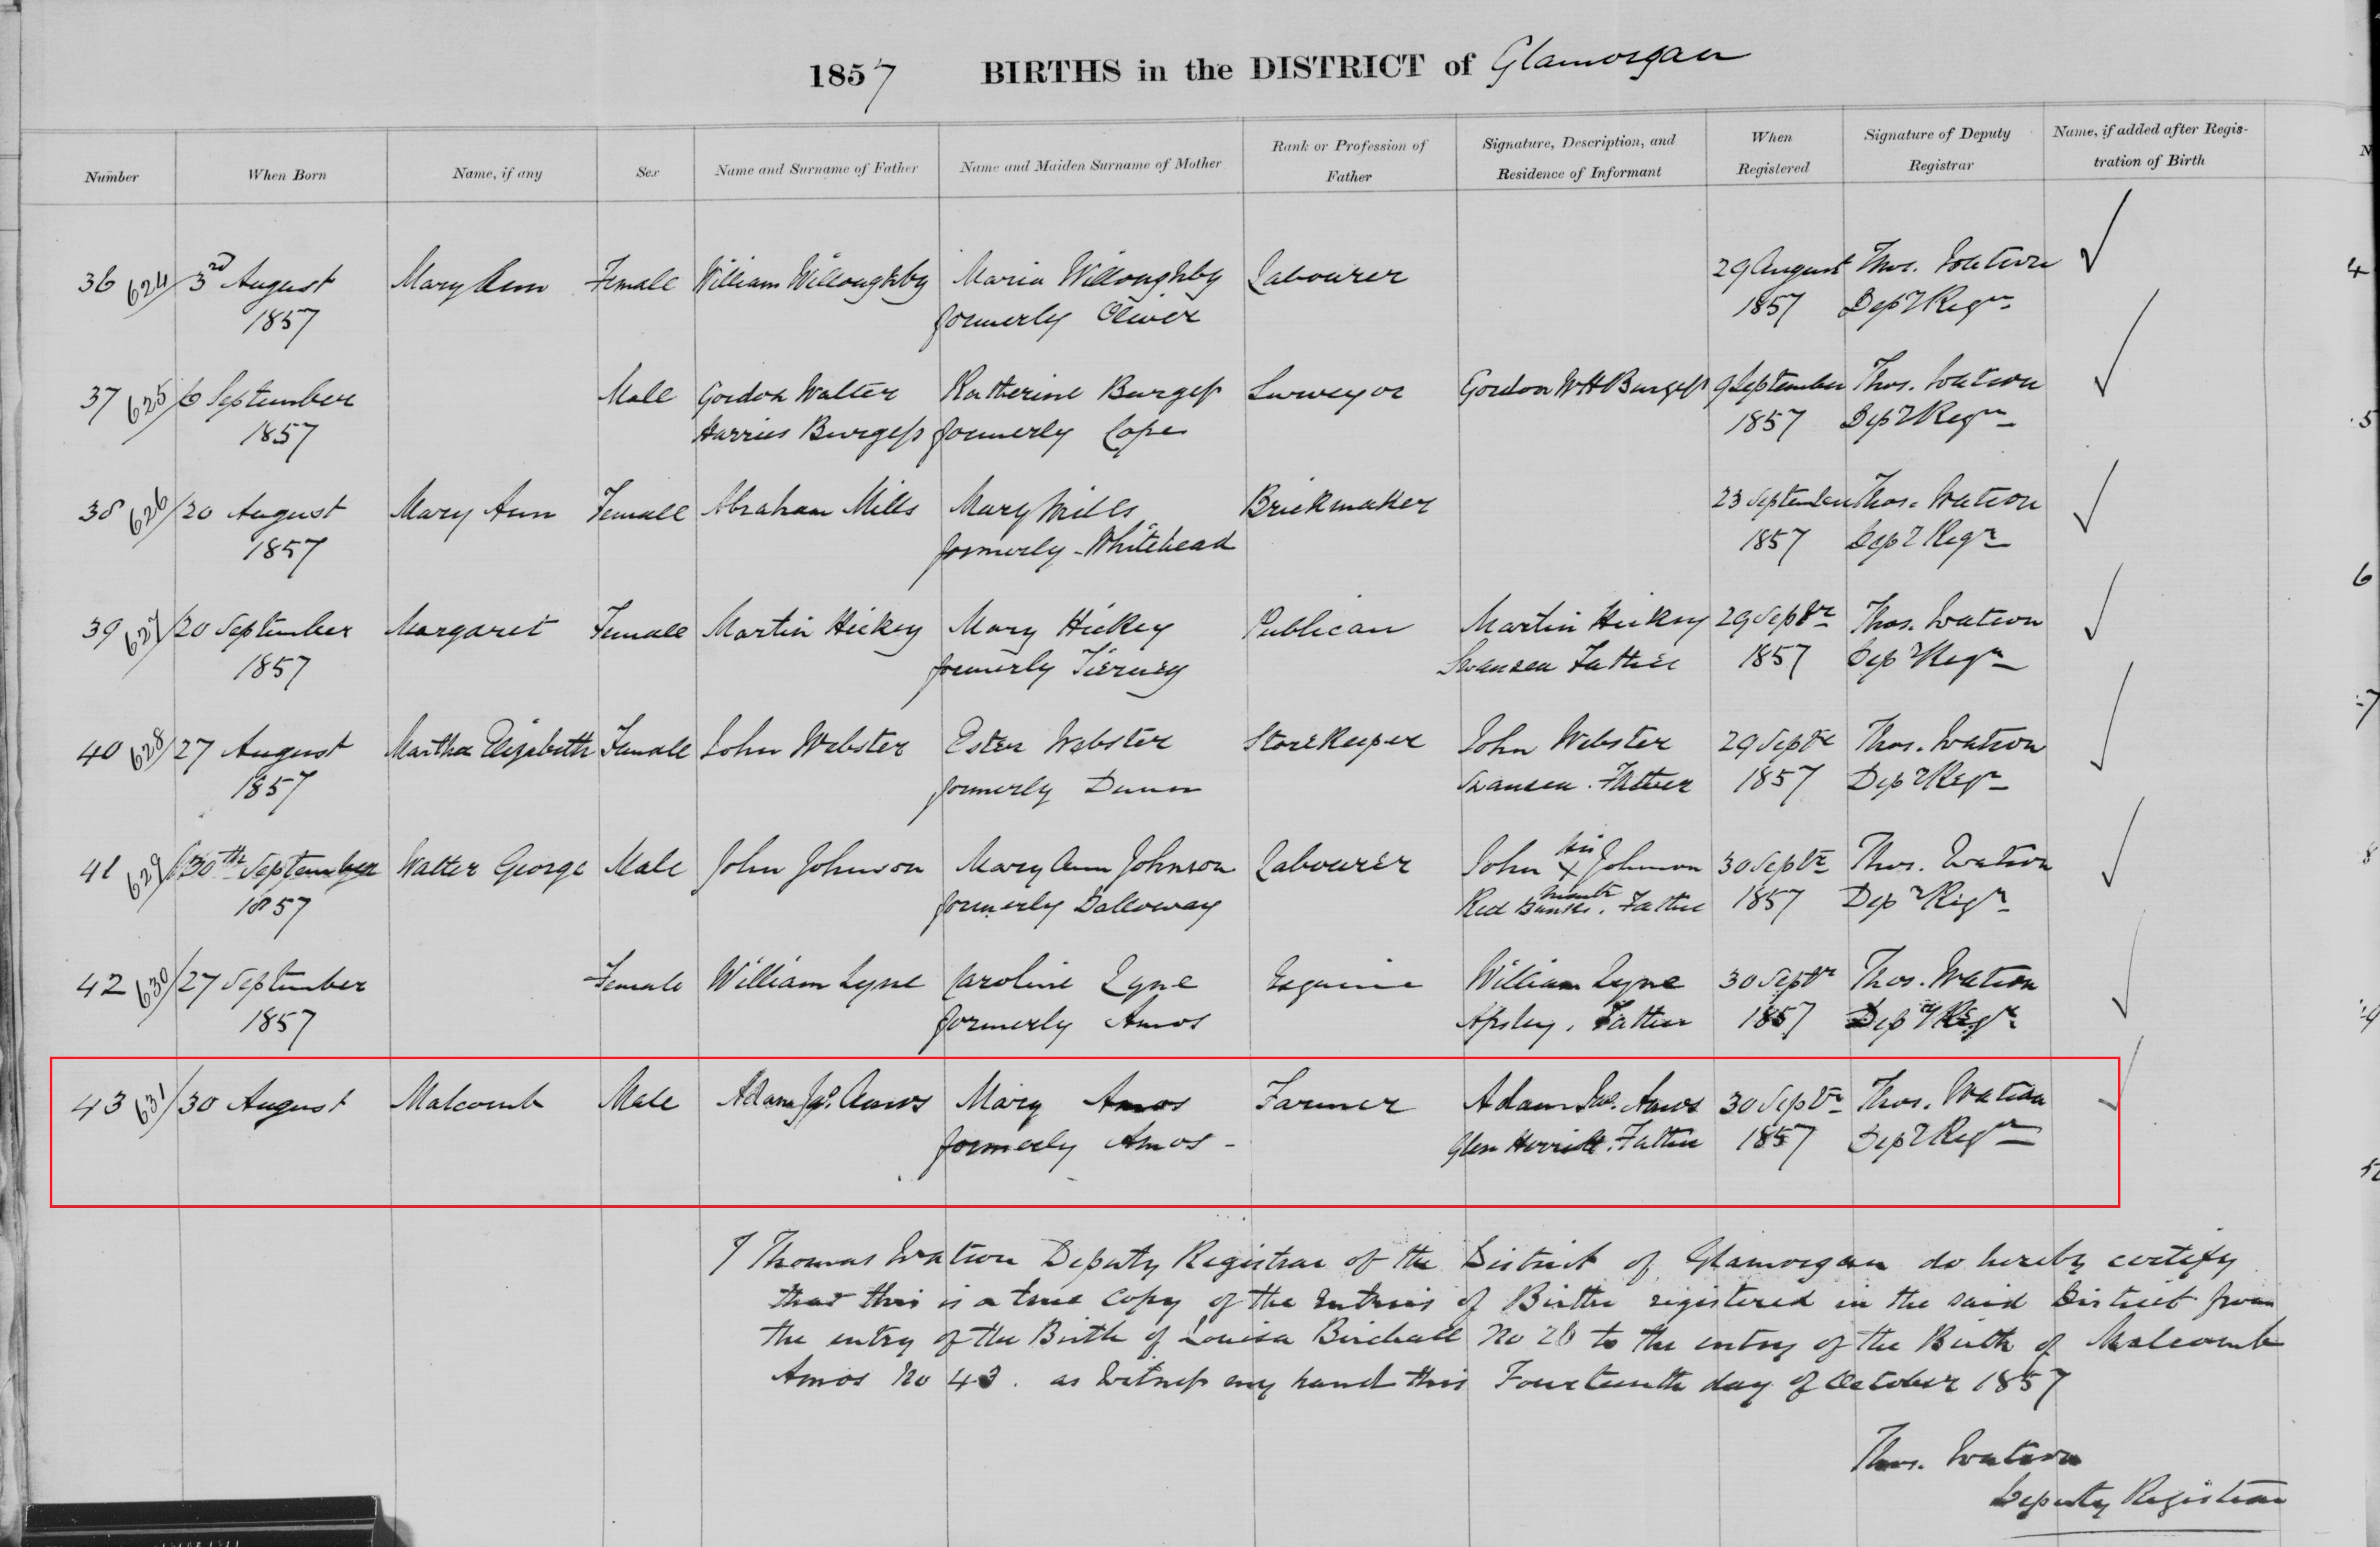 1857 BIRTHS in the DISTRICT of Glamorgan
Number When Born Name, if any Sex Name and Surname of Father Name and Maiden Surname of Mother Rank or Profession of Father Signature, Description, and Residence of Informant When Registered Signature of Deputy Registrar Name, if added after Registration of Birth
36 624 3rd August Mary Ann Female William Willoughby Maria Willoughby Labourer 29 August Thos. Watson
1857 formerly Oliver 1857 Depy Regr
37 625 6 September Male Gordon Walter Katherine Burgess Surveyor Gordon W H Burgess 9 September Thos. Watson
1857 Harries Burgess formerly Cope 1857 Depy Regr
38 626 20 August Mary Ann Female Abraham Mills Mary Mills Brickmaker 23 September Thos. Watson
1857 formerly Whitehead 1857 Depy Regr
39 627 20 September Margaret Female Martin Hickey Mary Hickey Publican Martin Hickey 29 Septr Thos. Watson
1857 formerly Tierney Swansea Father 1857 Depy Regr
40 628 27 August Martha Elizabeth Female John Webster Ester Webster Storekeeper John Webster 29 Septr Thos. Watson
1857 formerly Dunn Swansea. Father 1857 Depy Regr
41 629 30th September Walter George Male John Johnson Mary Ann Johnson Labourer John his X Johnson 30 Septr Thos. Watson
1857 formerly Dalloway Red Banks. mark Father 1857 Depy Regr
42 630 27 September Female William Lyne Caroline Lyne Esquire William Lyne 30 Septr Thos. Watson
1857 formerly Amos Apsley, Father 1857 Depy Regr
43 631 30 August Malcomb Male Adam Jas. Amos Mary Amos Farmer Adam Jas. Amos 30 Septr Thos. Watson
formerly Amos - Glen Herriot. Father 1857 Depy Regr
I Thomas Watson Deputy Registrar of the District of Glamorgan do hereby certify
that this is a true copy of the Entries of Births registered in the said District from
the entry of the Birth of Louisa Birchall No 26 to the entry of the Birth of Malcomb
Amos No 43. as Witness my hand this Fourteenth day of October 1857
Thos. Watson
Deputy Registrar